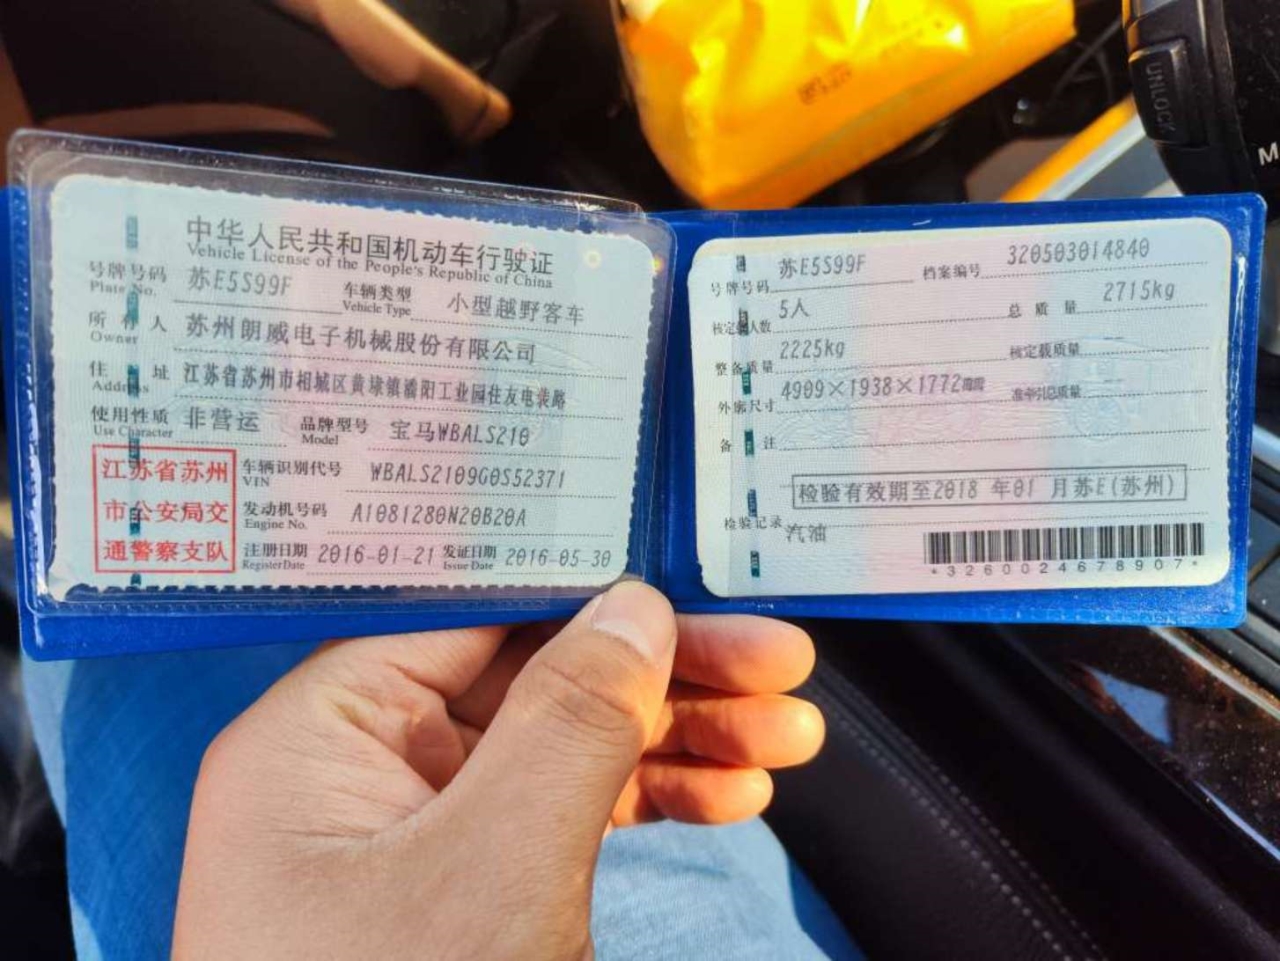 UNLOCK
M
中华人民共和国机动车行驶证
Vehicle License of the People's Republic of China
号牌号码 苏E5S99F 车辆类型 小型越野客车
Plate No. Vehicle Type
所有人 苏州朗威电子机械股份有限公司
Owner
住址 江苏省苏州市相城区黄埭镇潘阳工业园住友电装路
Address
使用性质 非营运 品牌型号 宝马WBALS210
Use Character Model
江苏省苏州
市公安局交
通警察支队
车辆识别代号 WBALS2109G0S52371
VIN
发动机号码 A1081280N20B20A
Engine No.
注册日期 2016-01-21 发证日期 2016-05-30
Register Date Issue Date
号牌号码 苏E5S99F 档案编号 320503014840
核定载人数 5人 总质量 2715kg
整备质量 2225kg 核定载质量 --
外廓尺寸 4909×1938×1772mm 准牵引总质量 --
备注
检验有效期至2018 年01 月苏E(苏州)
检验记录 汽油
*3260024678907*